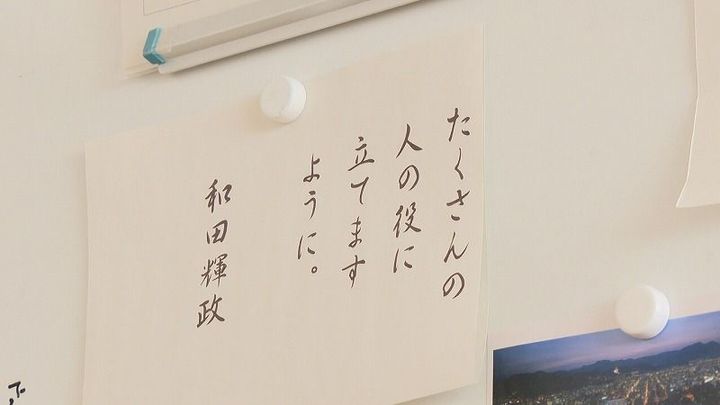 たくさんの
人の役に
立てます
ように。
和田輝政